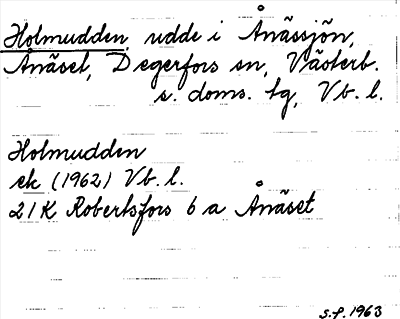 Holmudden, udde i Ånässjön,
Ånäset, Degerfors sn, Västerb.
s. doms. tg, Vb. l.
Holmudden
ek (1962) Vb. l.
21K Robertsfors 6 a Ånäset
S.P. 1963